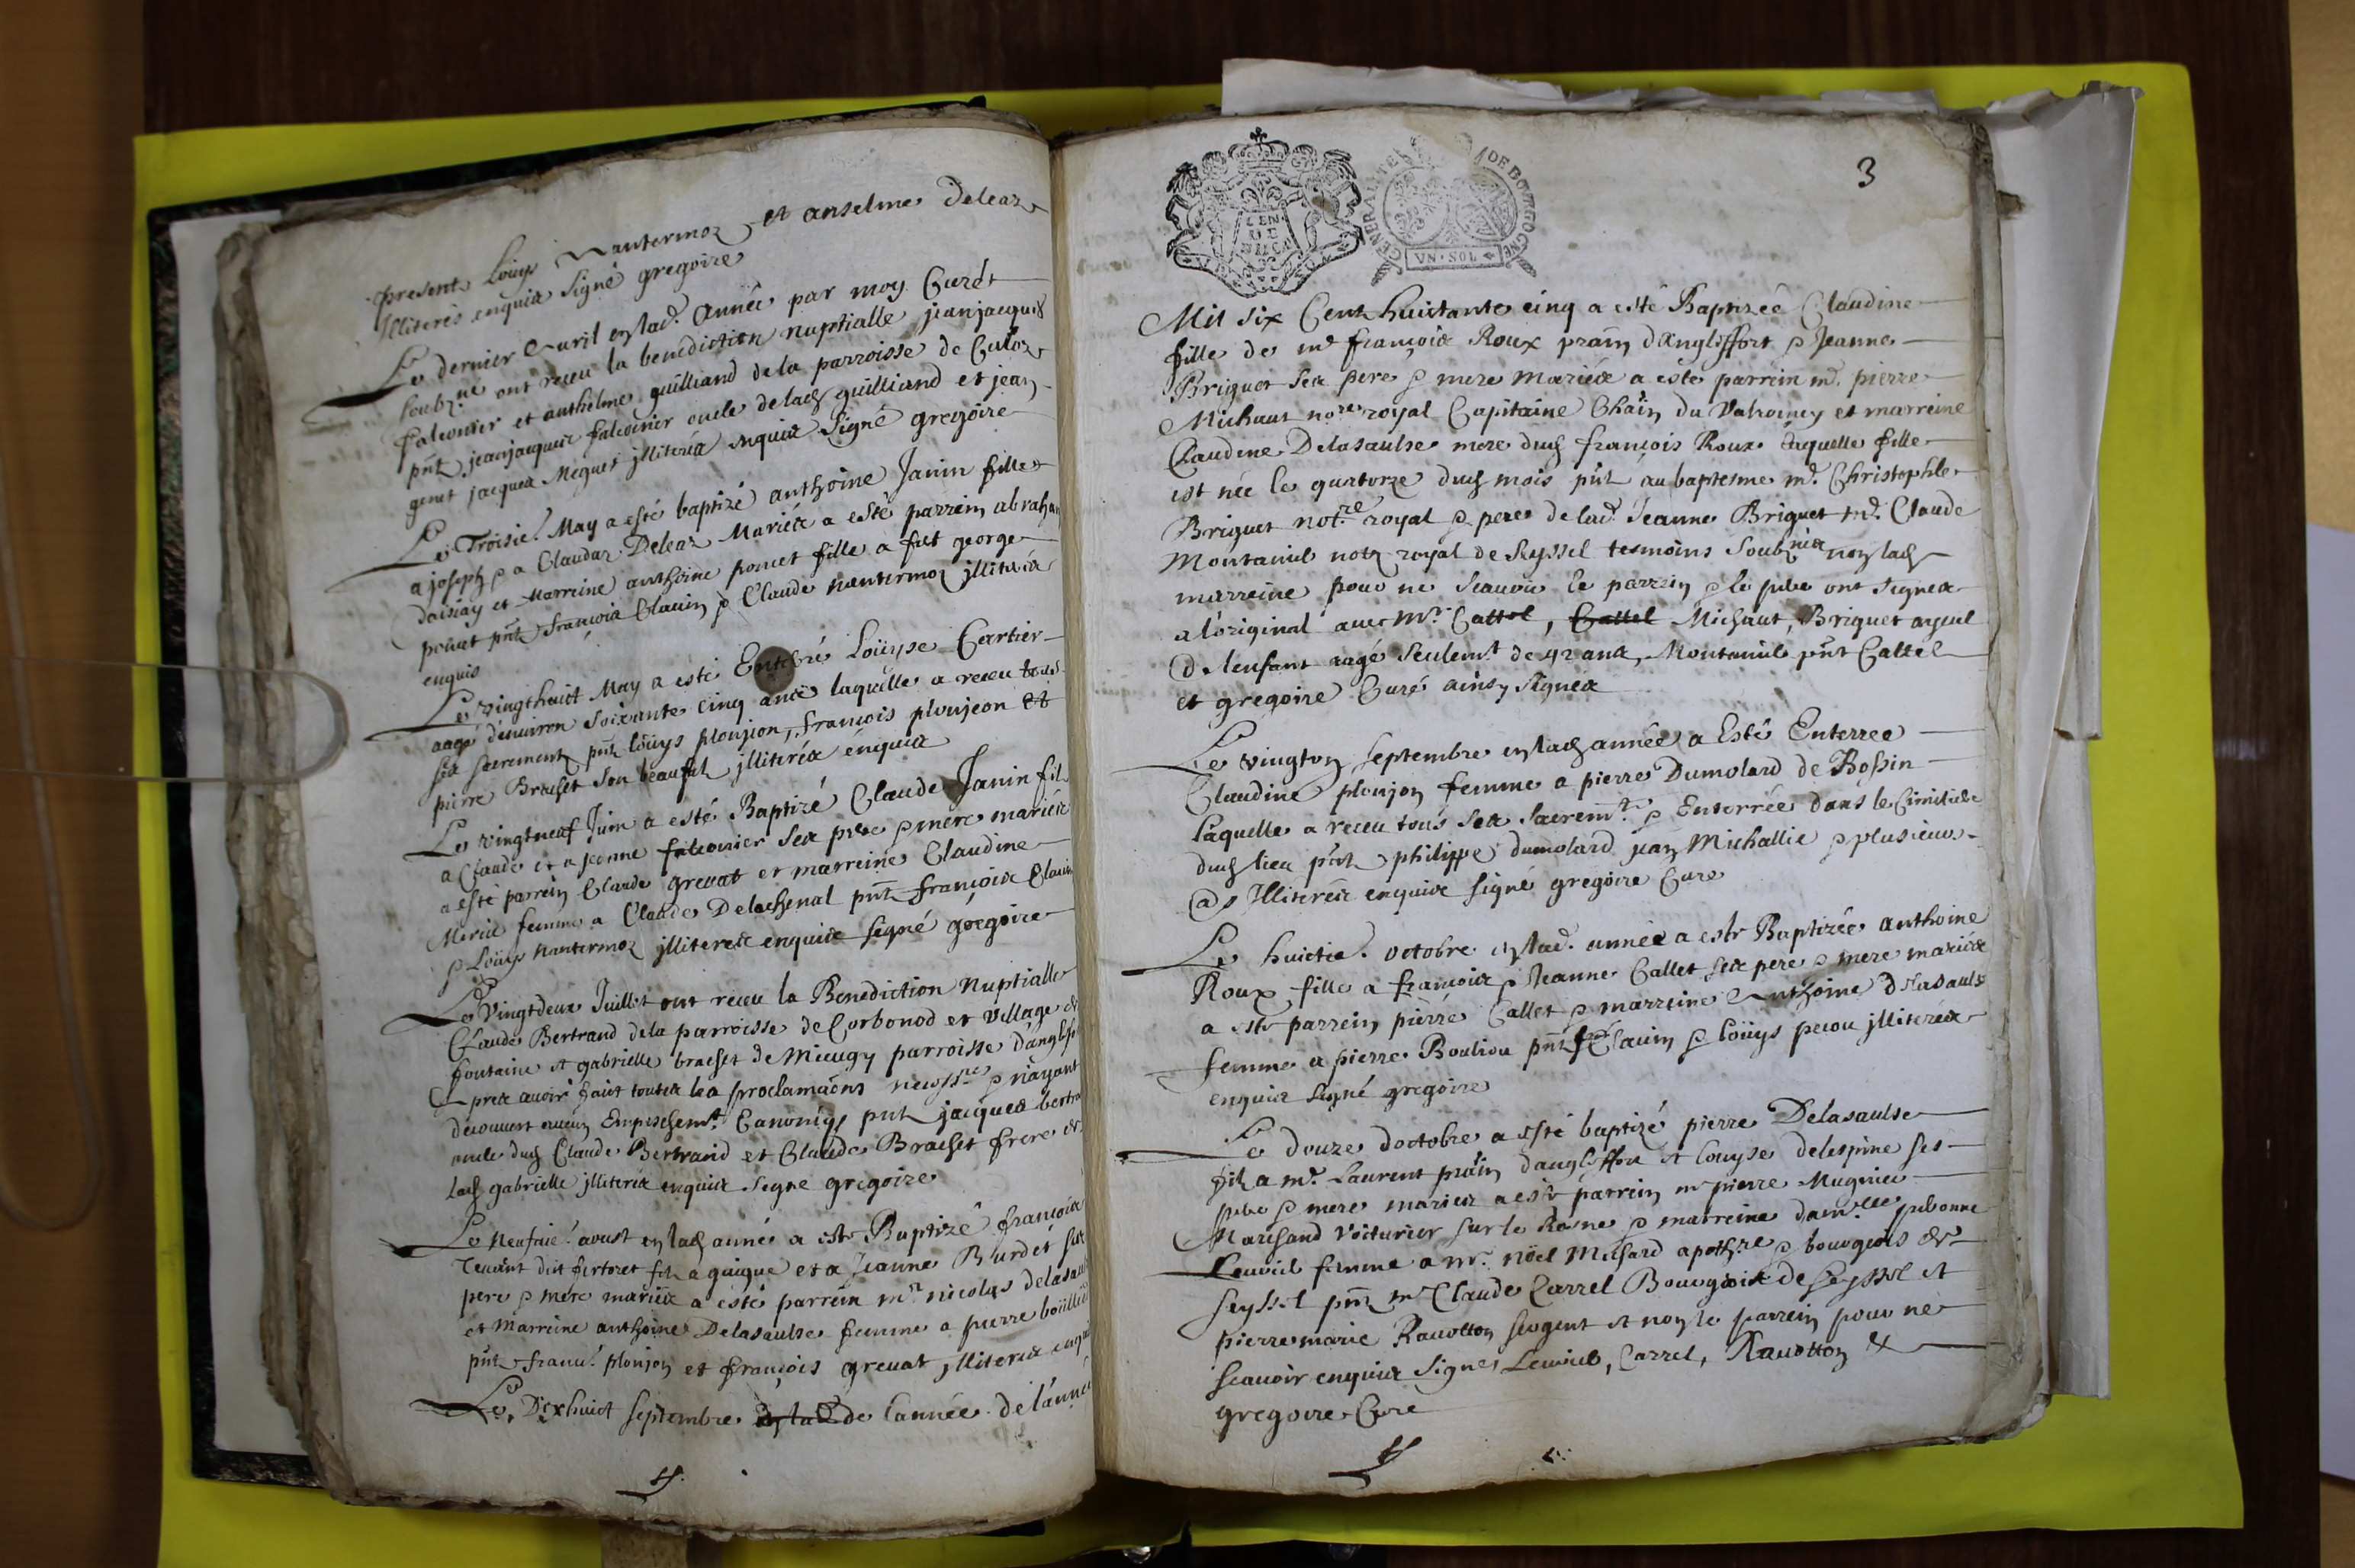 present Loüys Nantermoz et anselme Deleaz
Illiterés enquis signé gregoire
Le dernier Auril en lad. Année par moy Curé
soubz.né ont receu la benediction nuptialle jeanjacques
falconier et anthelme guilliand de la parroisse de Culoz
pñt jeanjacques falconier oncle de lad guilliand et jean
genet jacques Meguet jlliterés enquis signé gregoire
Le Troisie. May a esté baptizé anthoine Janin fille
a joseph p a Claudaz Deleaz Mariés a esté parrein abraham
daisiay et Marreine anthoine poncet fille a fut george
poncet pñt françois Clauin p Claude nantermoz jlliterés
enquis
Le vingthuict May a esté Enterré Loüyse Cartier
aagé denuiron soixante cinq ans laquelle a receu tous
ses sacrements pñt loüys ploujion, françois ploujeon et
pierre Brachet son beaufilz jlliterés enquis
Le vingtneuf Juin a esté Baptizé Claude Janin filz
a Claude et a jeanne falconier ses pere p mere mariés
a esté parrein Claude greuat et marreine Claudine
Meriè femme a Claude Delachenal pñt françois Clauin
p Loüys Nantermoz jlliterés enquis signé gregoire
Le Vingtdeux Juillet ont receu la Benediction Nuptialle
Claude Bertrand de la parroisse de Corbonod et village de
fontaine et gabrielle brachet de Mieugy parroisse danglefort
Apres auoir fait toutes les proclamaõns necess.res p n'ayant
decouuert aucun Empeschem.t Canonig pñt jacques bertra
oncle dud Claude Bertrand et Claude Brachet frere de
lad gabrielle jlliterés enquis signe gregoire
Le Neufuie. aoust en lad année a esté Baptizé françois
Teuent dit fertoret filz a guigue et a Jeanne Burdet ses
pere p mere mariés a esté parrein m.r nicolas delasau
et Marreine anthoine Delasaulse femme a pierre boüillie
pñt franc. ploujon et françois greuat jlliterés enqui
Le Dixhuict septembre en lad de l'année de l'année
3
GENERALITE DE BOURGOGNE
VN · SOL
Mil six Cent huictante cinq a esté Baptizée Claudine
fille de m.e françois Roux prãin d'Angleffort p Jeanne
Briguet ses pere p mere Mariés a este parrein m.e pierre
Michaut no.re royal Capitaine Chãin du Valromey et marreine
Claudine Delasaulse mere dud françois Roux laquelle fille
est née le quatorze dud mois pñt au baptesme m.e Christophle
Briguet not.re royal p pere de lad Jeanne Briguet m.e Claude
Montanier not.re royal de Seyssel tesmoins soubz.nés non lad
marreine pour ne scauoir le parrein p le pere ont signés
a l'original auec M.r Cattel, Cattel Michaut, Briguet ayeul
de lenfant aagé seulem.t de 42 ans, Montanier pñt Cattel
et gregoire Curé ainsy signés
Le vington septembre en lad année a Esté Enterree
Claudine ploujon femme a pierre Dumolard de Bossin
laquelle a receu tous ses sacrem.ts p Enterrée dans le Cimitiere
dud lieu pñt philippe dumolard jean Michallie p plusieurs
@s Illiterés enquis signé gregoire Cure
Le huictie. octobre en lad. année a este Baptizée anthoine
Roux fille a françois p Jeanne Callet ses pere p mere mariés
a este parrein pierre Callet p marreine Anthoine delasaulse
femme a pierre Bouliou pñt Clauin p Loüys pecou jlliterés
enquis signé gregoire
Le douze doctobre a esté baptizé pierre Delasaulse
filz a m.e Laurent prãin dangleffort et Louyse delespine ses
pere p mere maries a esté parrein m.e pierre Muginier
Marchand voiturier sur le Rosne p marreine dam.lle pernonne
Leuiel femme a m.e Nöel Michard apoth.re p bourgeois de
Seyssel pñt m.e Claude Carrel Bourgeois de Seyssel et
pierremarie Rauotton sergent et non le parrein pour ne
scauoir enquis signes Leuiel, Carrel, Rauotton &
gregoire Cure